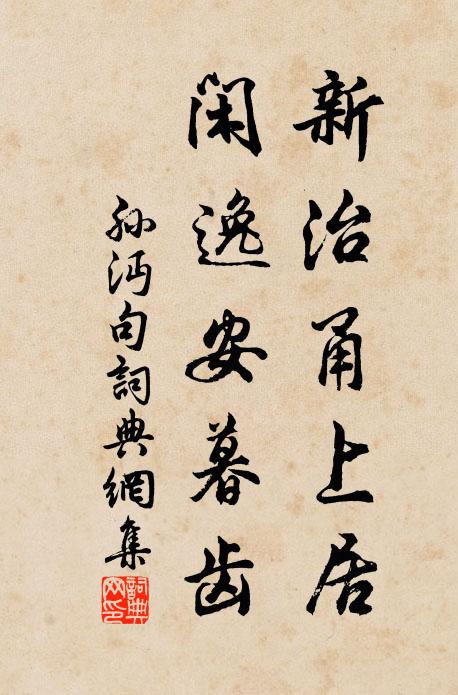 新治甬上居
闲逸安暮齿
孙沔句詞典網集
詞典
网印